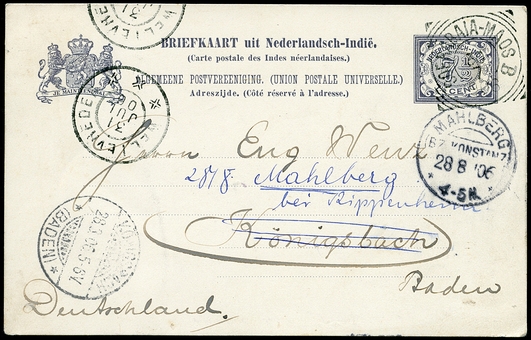 BRIEFKAART uit Nederlandsch-Indië.
(Carte postale des Indes néerlandaises.)
ALGEMEENE POSTVEREENIGING. (UNION POSTALE UNIVERSELLE.)
Adreszijde. (Côté réservé à l'adresse.)
JE MAINTIENDRAI
NEDERLANDSCH-INDIË
7½
CENT
MAOS B
WELTEVREDEN
31
WELTEVREDEN
31
MAHLBERG
BZ. KONSTANZ
28 8 06
4-5N.
Herrn Eug Wenz
28/8 Mahlberg
bei Kippenheim
Königsbach
Baden
(BADEN)
28.8.06.5-6V.
Deutschland.